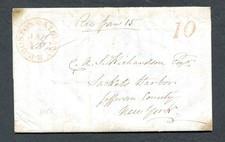 Rec Jan 15
10
A. S. Richardson Esqr.
Sackets Harbor
Jefferson County
New York